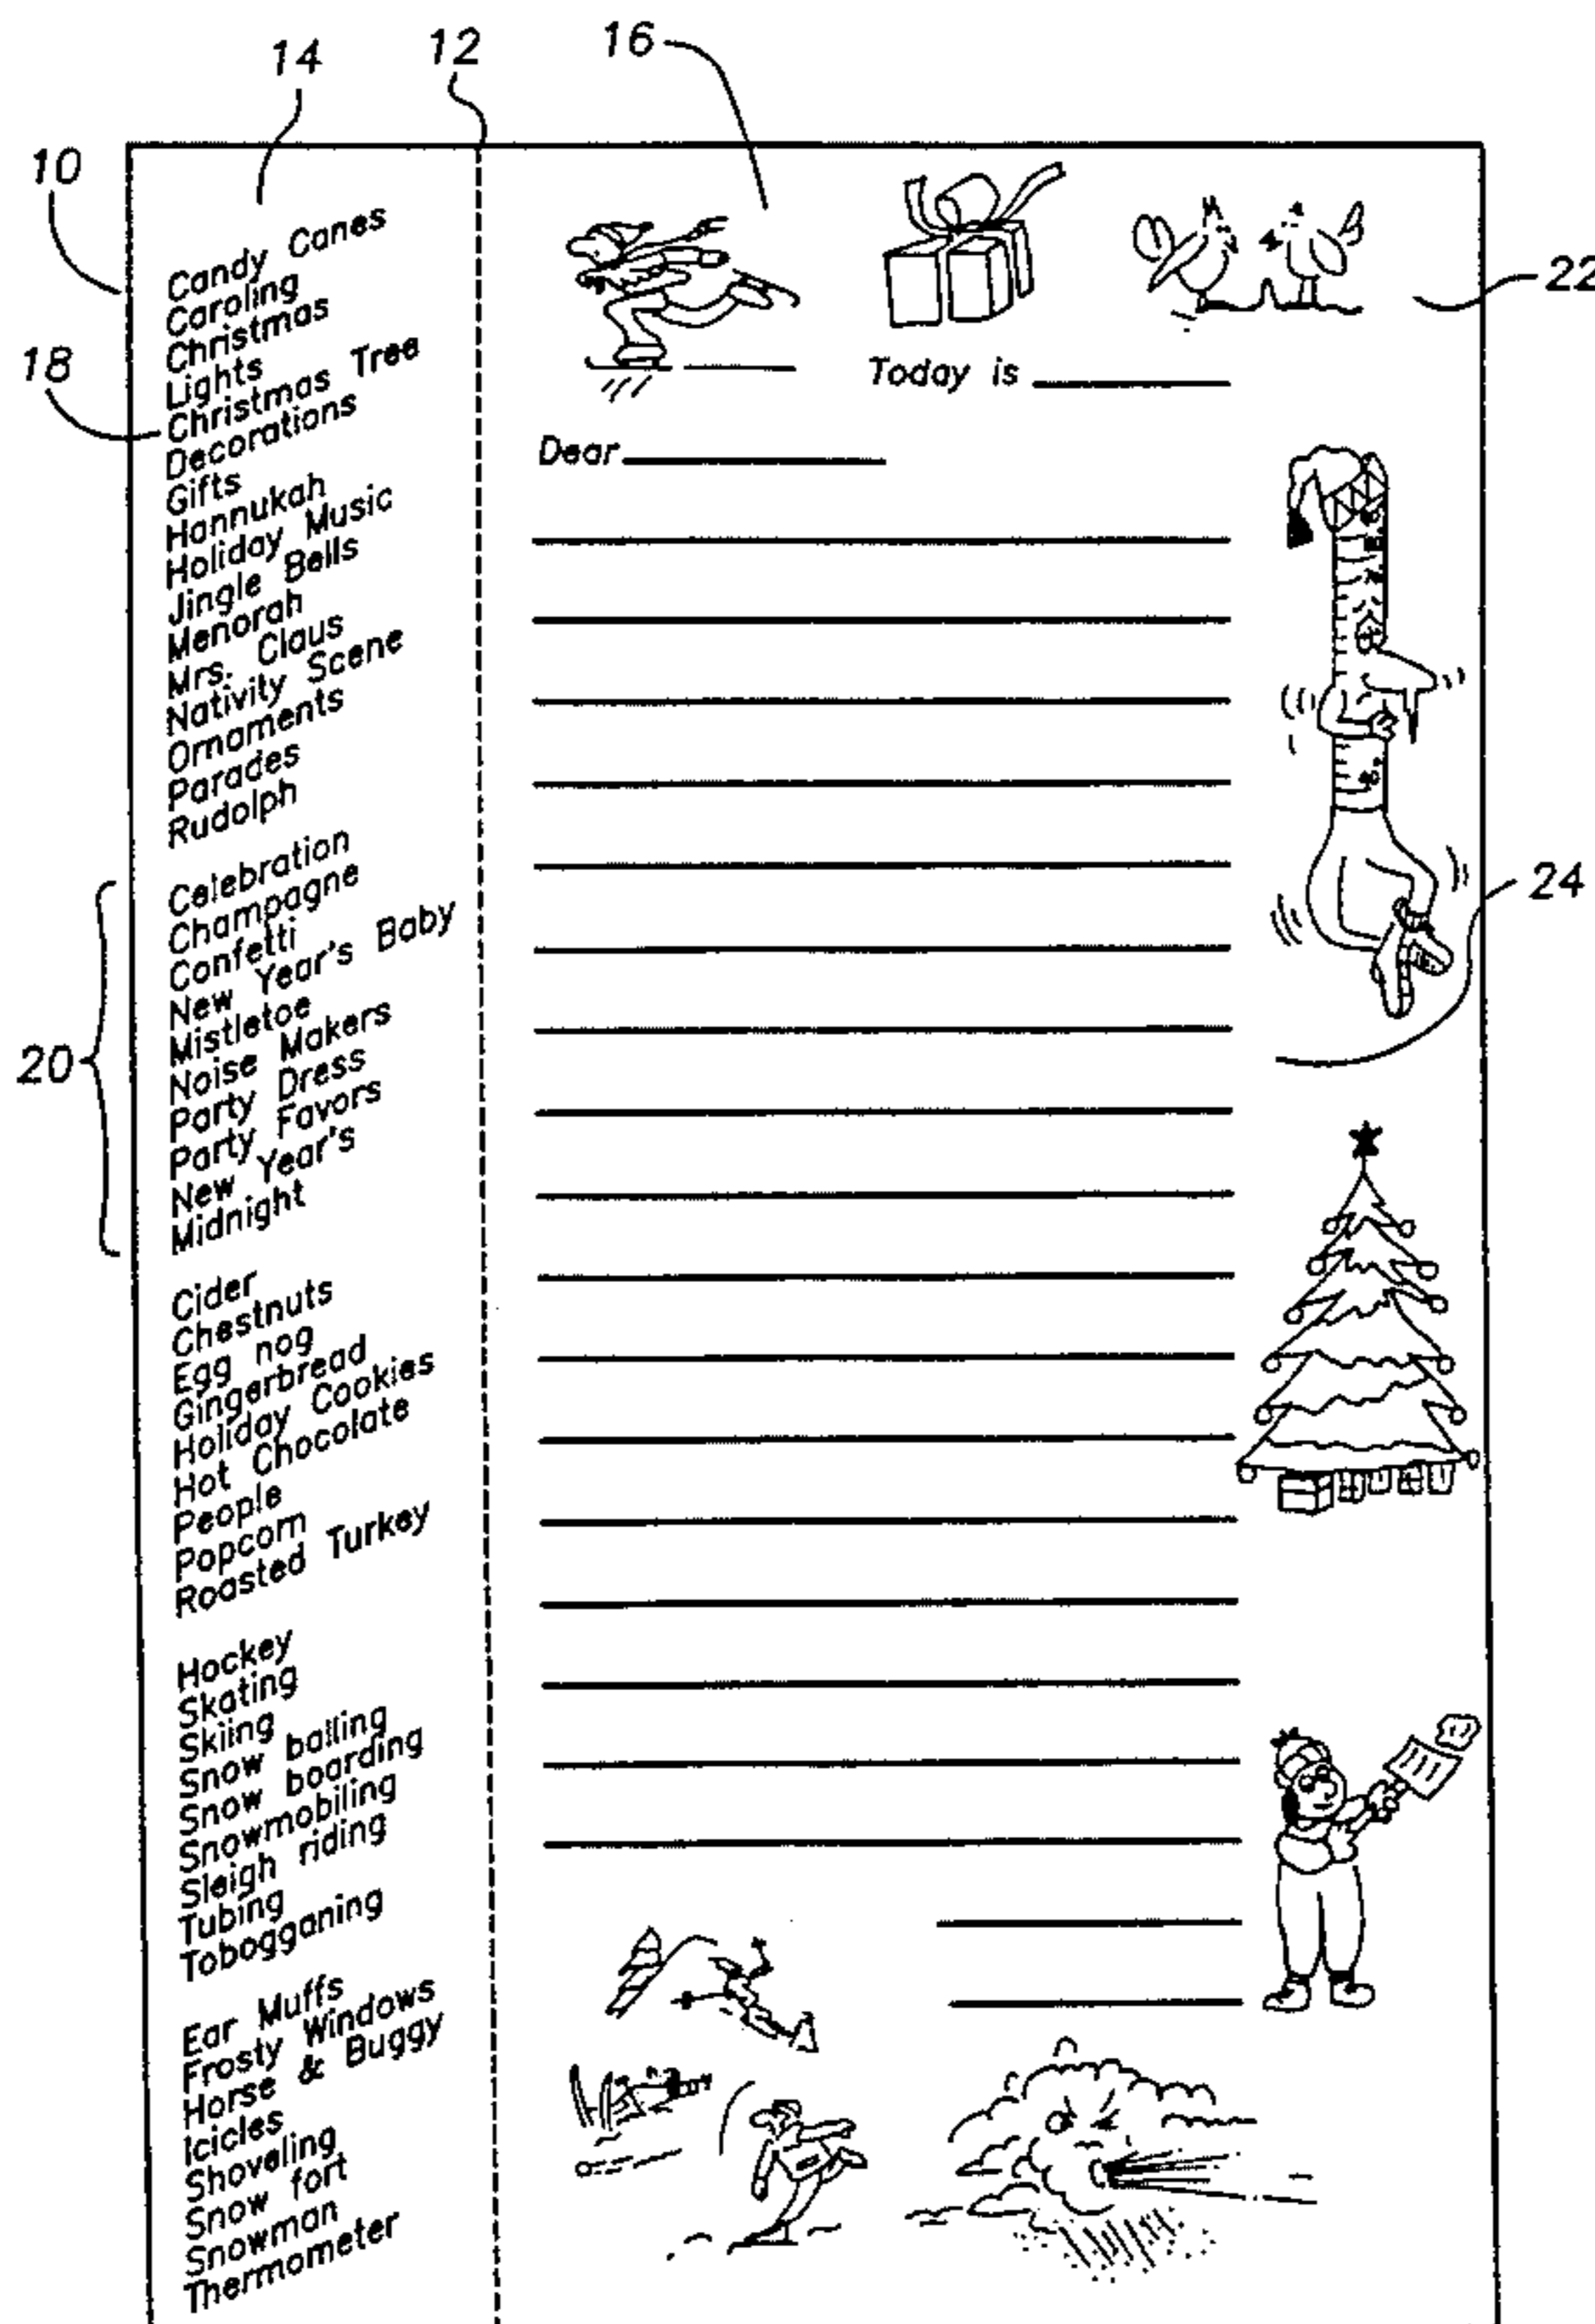 14
12
16
10
22
18
24
20
Candy Canes
Caroling
Christmas
Lights
Christmas Tree
Decorations
Gifts
Hannukah
Holiday Music
Jingle Bells
Menorah
Mrs. Claus
Nativity Scene
Ornaments
Parades
Rudolph
Celebration
Champagne
Confetti
New Year's Baby
Mistletoe
Noise Makers
Party Dress
Party Favors
New Year's
Midnight
Cider
Chestnuts
Egg nog
Gingerbread
Holiday Cookies
Hot Chocolate
People
Popcorn
Roasted Turkey
Hockey
Skating
Skiing
Snow balling
Snow boarding
Snowmobiling
Sleigh riding
Tubing
Tobogganing
Ear Muffs
Frosty Windows
Horse & Buggy
Icicles
Shoveling
Snow fort
Snowman
Thermometer
Today is
Dear